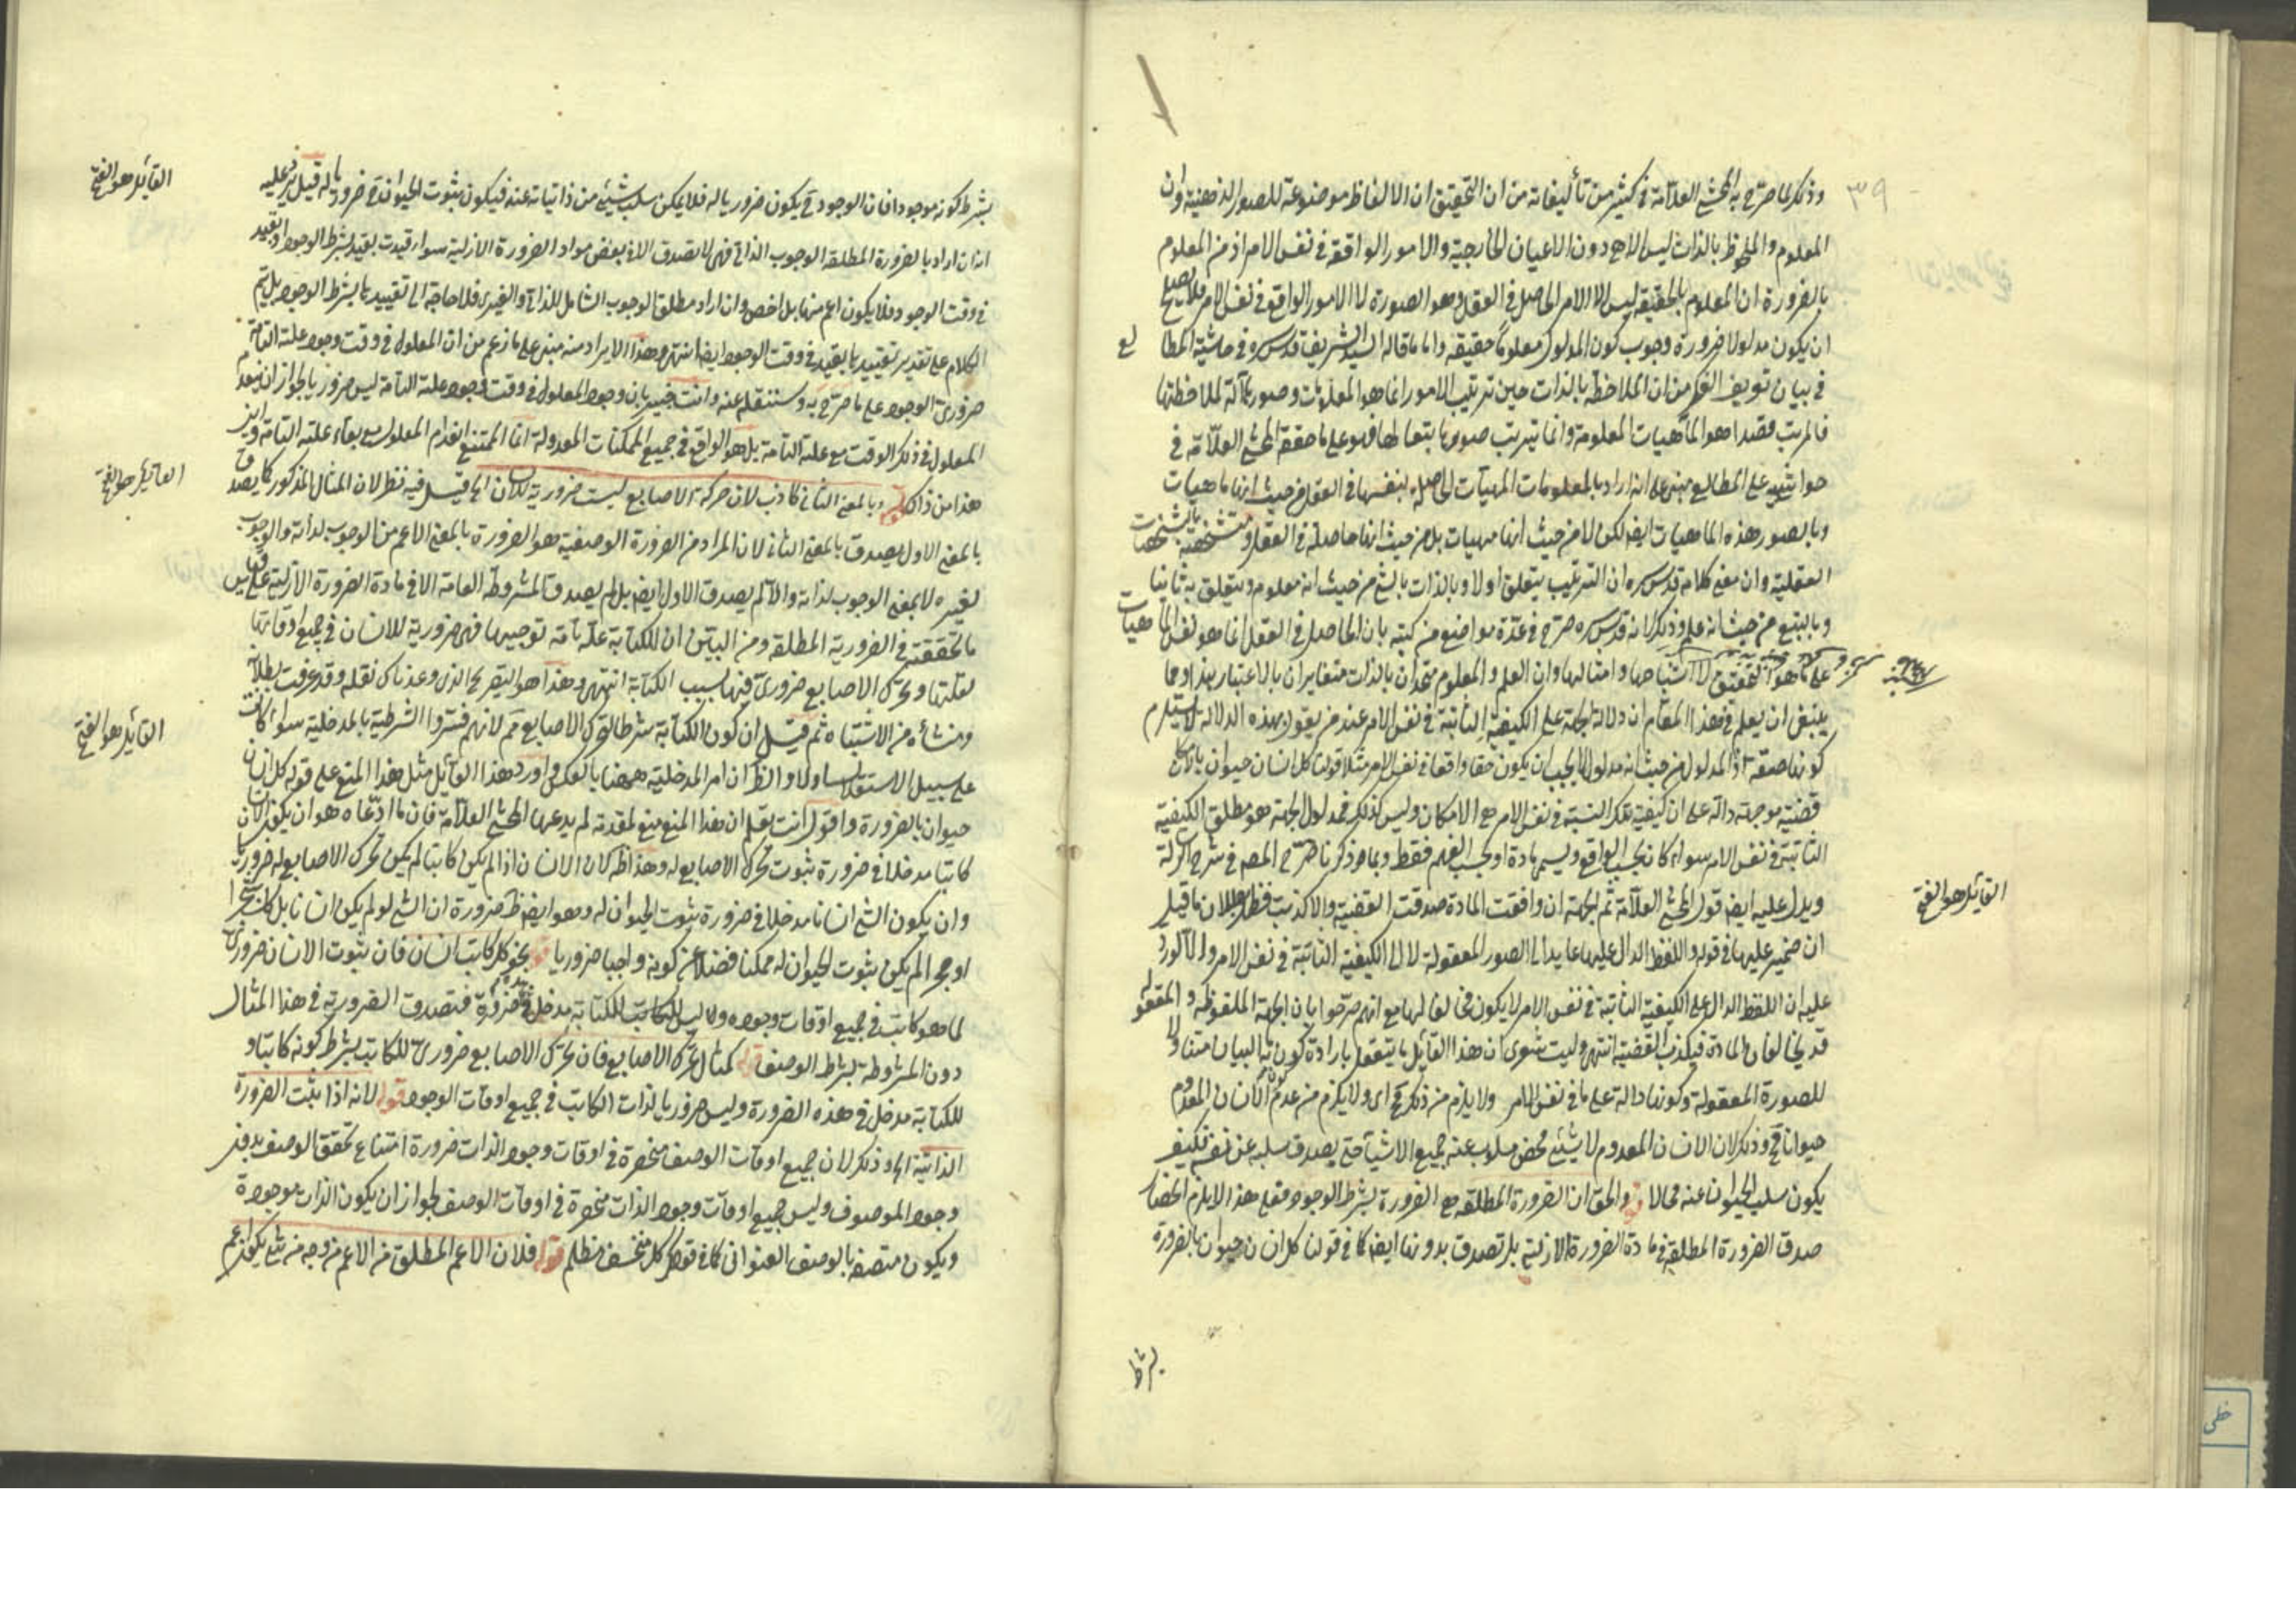 ٣٩
وذلك لما صرّح به المحشي العلّامة في كثير من تأليفاته من ان التحقيق ان الالفاظ موضوعة للصور الذهنية وان
المعلوم والملحوظ بالذات ليس الا هي دون الاعيان الخارجية والامور الواقعة في نفس الامر اذ من المعلوم
بالضرورة ان المعلوم بالحقيقة ليس الا الامر الحاصل في العقل وهو الصورة لا الامور الواقع في نفس الامر فلا يصلح
ان يكون مدلولا ضرورة وجوب كون المدلول معلوماً حقيقة واما ما قاله السيد الشريف قدس سره في حاشية المطا
لع
في بيان تعريف الفكر من ان الملاحظة بالذات حين ترتيب الامور انما هو المعلومات وصورها آلة لملاحظتها
فالمرتب قصدا هو الماهيات المعلومة وانما يترتب صورها بتعا لها فهو على ما حققه المحشي العلّامة في
حواشيه على المطالع مبني على انه اراد بالمعلومات المهيّات الحاصلة بنفسها في العقل من حيث انها ماهيات
وبالصور هذه الماهيات ايضا لكن لا من حيث انها مهيات بل من حيث انها حاصلة في العقل ومتشخصة بالتشخصات
العقلية وان معنى كلامه قدس سره ان الترتيب يتعلق اولا وبالذات بالشيء من حيث انه معلوم ويتعلق به ثانيا
وبالتبع من حيث انه علم وذلك لانه قدس سره صرح في عدّة مواضع من كتبه بان الحاصل في العقل انما هو نفس الماهيات
على ما هو التحقيق لا اشباحها وامثالها وان العلم والمعلوم متحدان بالذات متغايران بالاعتبار هذا ومما
ينبغي ان يعلم في هذا المقام ان دلالة الجهة على الكيفية الثابتة في نفس الامر عند من يقول بهذه الدلالة لا يستلزم
كونها صادقة اذ المدلول من حيث انه مدلول لا يجب ان يكون حقا واقعا في نفس الامر مثلا قولنا كل انسان حيوان بالامكان
قضية موجهة دالة على ان كيفية تلك النسبة في نفس الامر هي الامكان وليس كذلك فمدلول الجهة هو مطلق الكيفية
الثابتة في نفس الامر سواء كان بحسب الواقع ويسمى مادة او بحسب الفهم فقط وبما ذكرنا صرّح المصـ في شرح الرسالة
ويدل عليه ايضا قول المحشي العلّامة ثم الجهة ان وافقت المادة صدقت القضية والا كذبت فظهر بطلان ما قيل
ان ضمير عليها في قوله واللفظ الدال عليها عايد الى الصور المعقولة لا الى الكيفية الثابتة في نفس الامر والا لورد
القائل هو الفتح
عليه ان اللفظ الدال على الكيفية الثابتة في نفس الامر لا يكون مخالفا لها مع انهم صرّحوا بان الجهة الملفوظة والمعقولة
قد يخالفان المادة فيكذب القضية انتهى وليت شعري ان هذا القائل ما يتعقل بارادة كون البيان متناولا
للصورة المعقولة وكونها دالة على ما في نفس الامر ولا يلزم من ذلك مح اى ولا يلزم من عدم كون الانسان المعدوم
حيوانا مح وذلك لان الانسان المعدوم لا شيئ محض مسلوب عنه جميع الاشياء حتى يصدق سلبه عن نفسه فكيف
يكون سلب الحيوان عنه محالا قوله والحق ان الضرورة المطلقة هي الضرورة بشرط الوجود فعلى هذا لا يلزم انحصار
صدق الضرورة المطلقة في مادة الضرورة الازلية بل تصدق بدونها ايضا كما في قولنا كل انسان حيوان بالضرورة
بشرط
بشرط كونه موجودا فان الوجود ح يكون ضروريا له فلا يمكن سلب شيئ من ذاتياته عنه فيكون ثبوت الحيوان ح ضروريا له قيل يرد عليه
القائل هو الفتح
انه ان اراد بالضرورة المطلقة الوجوب الذاتي فهي لا تصدق الا في بعض مواد الضرورة الازلية سواء قيدت بقيد بشرط الوجود او بقيد
في وقت الوجود فلا يكون اعم منها بل اخص وان اراد مطلق الوجوب الشامل للذاتي والغيري فلا حاجة الى تقييدها بشرط الوجود بل يتم
الكلام على تقدير تقييدها بقيد في وقت الوجود ايضا انتهى وهذا الايراد منه مبني على ما زعم من ان المعلول في وقت وجود علته التامة
ضروري الوجود على ما صرّح به وسننقله عنه وانت خبير بان وجود المعلول في وقت وجود علته التامة ليس ضروريا لجواز ان ينعدم
المعلول في ذلك الوقت مع علته التامة بل هو الواقع في جميع الممكنات المعدولة انما الممتنع انعدام المعلول مع بقاء علته التامة واين
هذا من ذاك قوله وبالمعنى الثاني كاذب لان حركة الاصابع ليست ضرورية للانسان الخ قيل فيه نظر لان المثال المذكور كما يصدق
القائل هو الفتح
بالمعنى الاول يصدق بالمعنى الثاني لان المراد من الضرورة الوصفية هو الضرورة بالمعنى الاعم من الوجوب لذاته والوجوب
لغيره لا بمعنى الوجوب لذاته والا لم يصدق الاول ايضا بل لم يصدق المشروطة العامة الا في مادة الضرورة الازلية على قياس
ما تحققته في الضرورية المطلقة ومن البيّن ان للكتابة علّة تامّة توجبها فهي ضرورية للانسان في جميع اوقاتها
لعلّتها وتحرك الاصابع ضروريّ فيها بسبب الكتابة انتهى وهذا هو التصريح الذي وعدناك نقله وقد عرفت بطلانه
ومنشأه من الاشتباه ثم قيل ان كون الكتابة شرطا لتحرك الاصابع مم لانهم فسّروا الشرطية بالمدخلية سواء كانت
القائل هو الفتح
على سبيل الاستقلال او لا والظ ان امر المدخلية ههنا بالعكس واورد هذا القائل مثل هذا المنع على قوله كل انسان
حيوان بالضرورة واقول انت تعلم ان هذا المنع منع لمقدمة لم يدعها المحشي العلّامة فان ما ادّعاه هو ان يكون الانسان
كاتبا مدخلا في ضرورة ثبوت تحرك الاصابع له وهذا ظ لان الانسان اذا لم يكن كاتبا لم يكن تحرك الاصابع له ضروريا
وان يكون الشيئ انسانا مدخلا في ضرورة ثبوت الحيوان له وهو ايضا ظ ضرورة ان الشيئ لو لم يكن انسانا بل كان شجرا
او حجرا لم يكن ثبوت الحيوان له ممكنا فضلا عن كونه واجبا ضروريا قوله نحو كل كاتب انسان فان ثبوت الانسان ضروري
لما هو كاتب في جميع اوقات وجوده وليس للكتابة مدخل في ضرورة فتصدق الضرورية في هذا المثال
دون المشروطة بشرط الوصف قوله كمثال تحرك الاصابع فان تحرك الاصابع ضروري للكاتب بشرط كونه كاتبا و
للكتابة مدخل في هذه الضرورة وليس ضروريا لذات الكاتب في جميع اوقات الوجود قوله لانه اذا ثبت الضرورة
الذاتية الخ وذلك لان جميع اوقات الوصف منحصرة في اوقات وجود الذات ضرورة امتناع تحقق الوصف بدون
وجود الموصوف وليس جميع اوقات وجود الذات منحصرة في اوقات الوصف لجواز ان يكون الذات موجودة
ويكون متصفه بالوصف العنواني كما في قولك كل منخسف مظلم قوله فلان الاعم المطلق من الاعم من وجه من شيئ يكون اعم
خطی